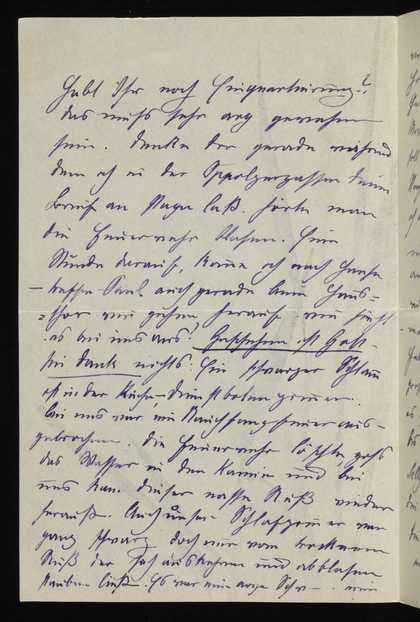 Habt Ihr noch Einquartierung?
das muss sehr arg gewesen
sein. Denke Dir gerade während
dem ich in der Oppolzergasse Deinen
Brief an Papa las. hörte man
die Feuerwehr blasen. Eine
Stunde darauf, komme ich nach Hause
treffe Paul auch gerade beim Haus-
thor wir gehen herauf. wie sieht
es bei uns aus! Geschehen ist Gott-
sei dank nichts. Ein schwarzer Schlamm
ist in der Küche Dienstbotenzimmer.
bei uns war ein Rauchfangfeuer aus-
gebrochen. die Feuerwehr löschte goss
das Wasser in den Kamin und bei
uns kam dieser nasse Ruß wieder
heraus. Auch unser Schlafzimmer war
ganz schwarz doch nur vom trockenen
Ruß der sich auskehren und abblasen
ließ. Es war eine arge